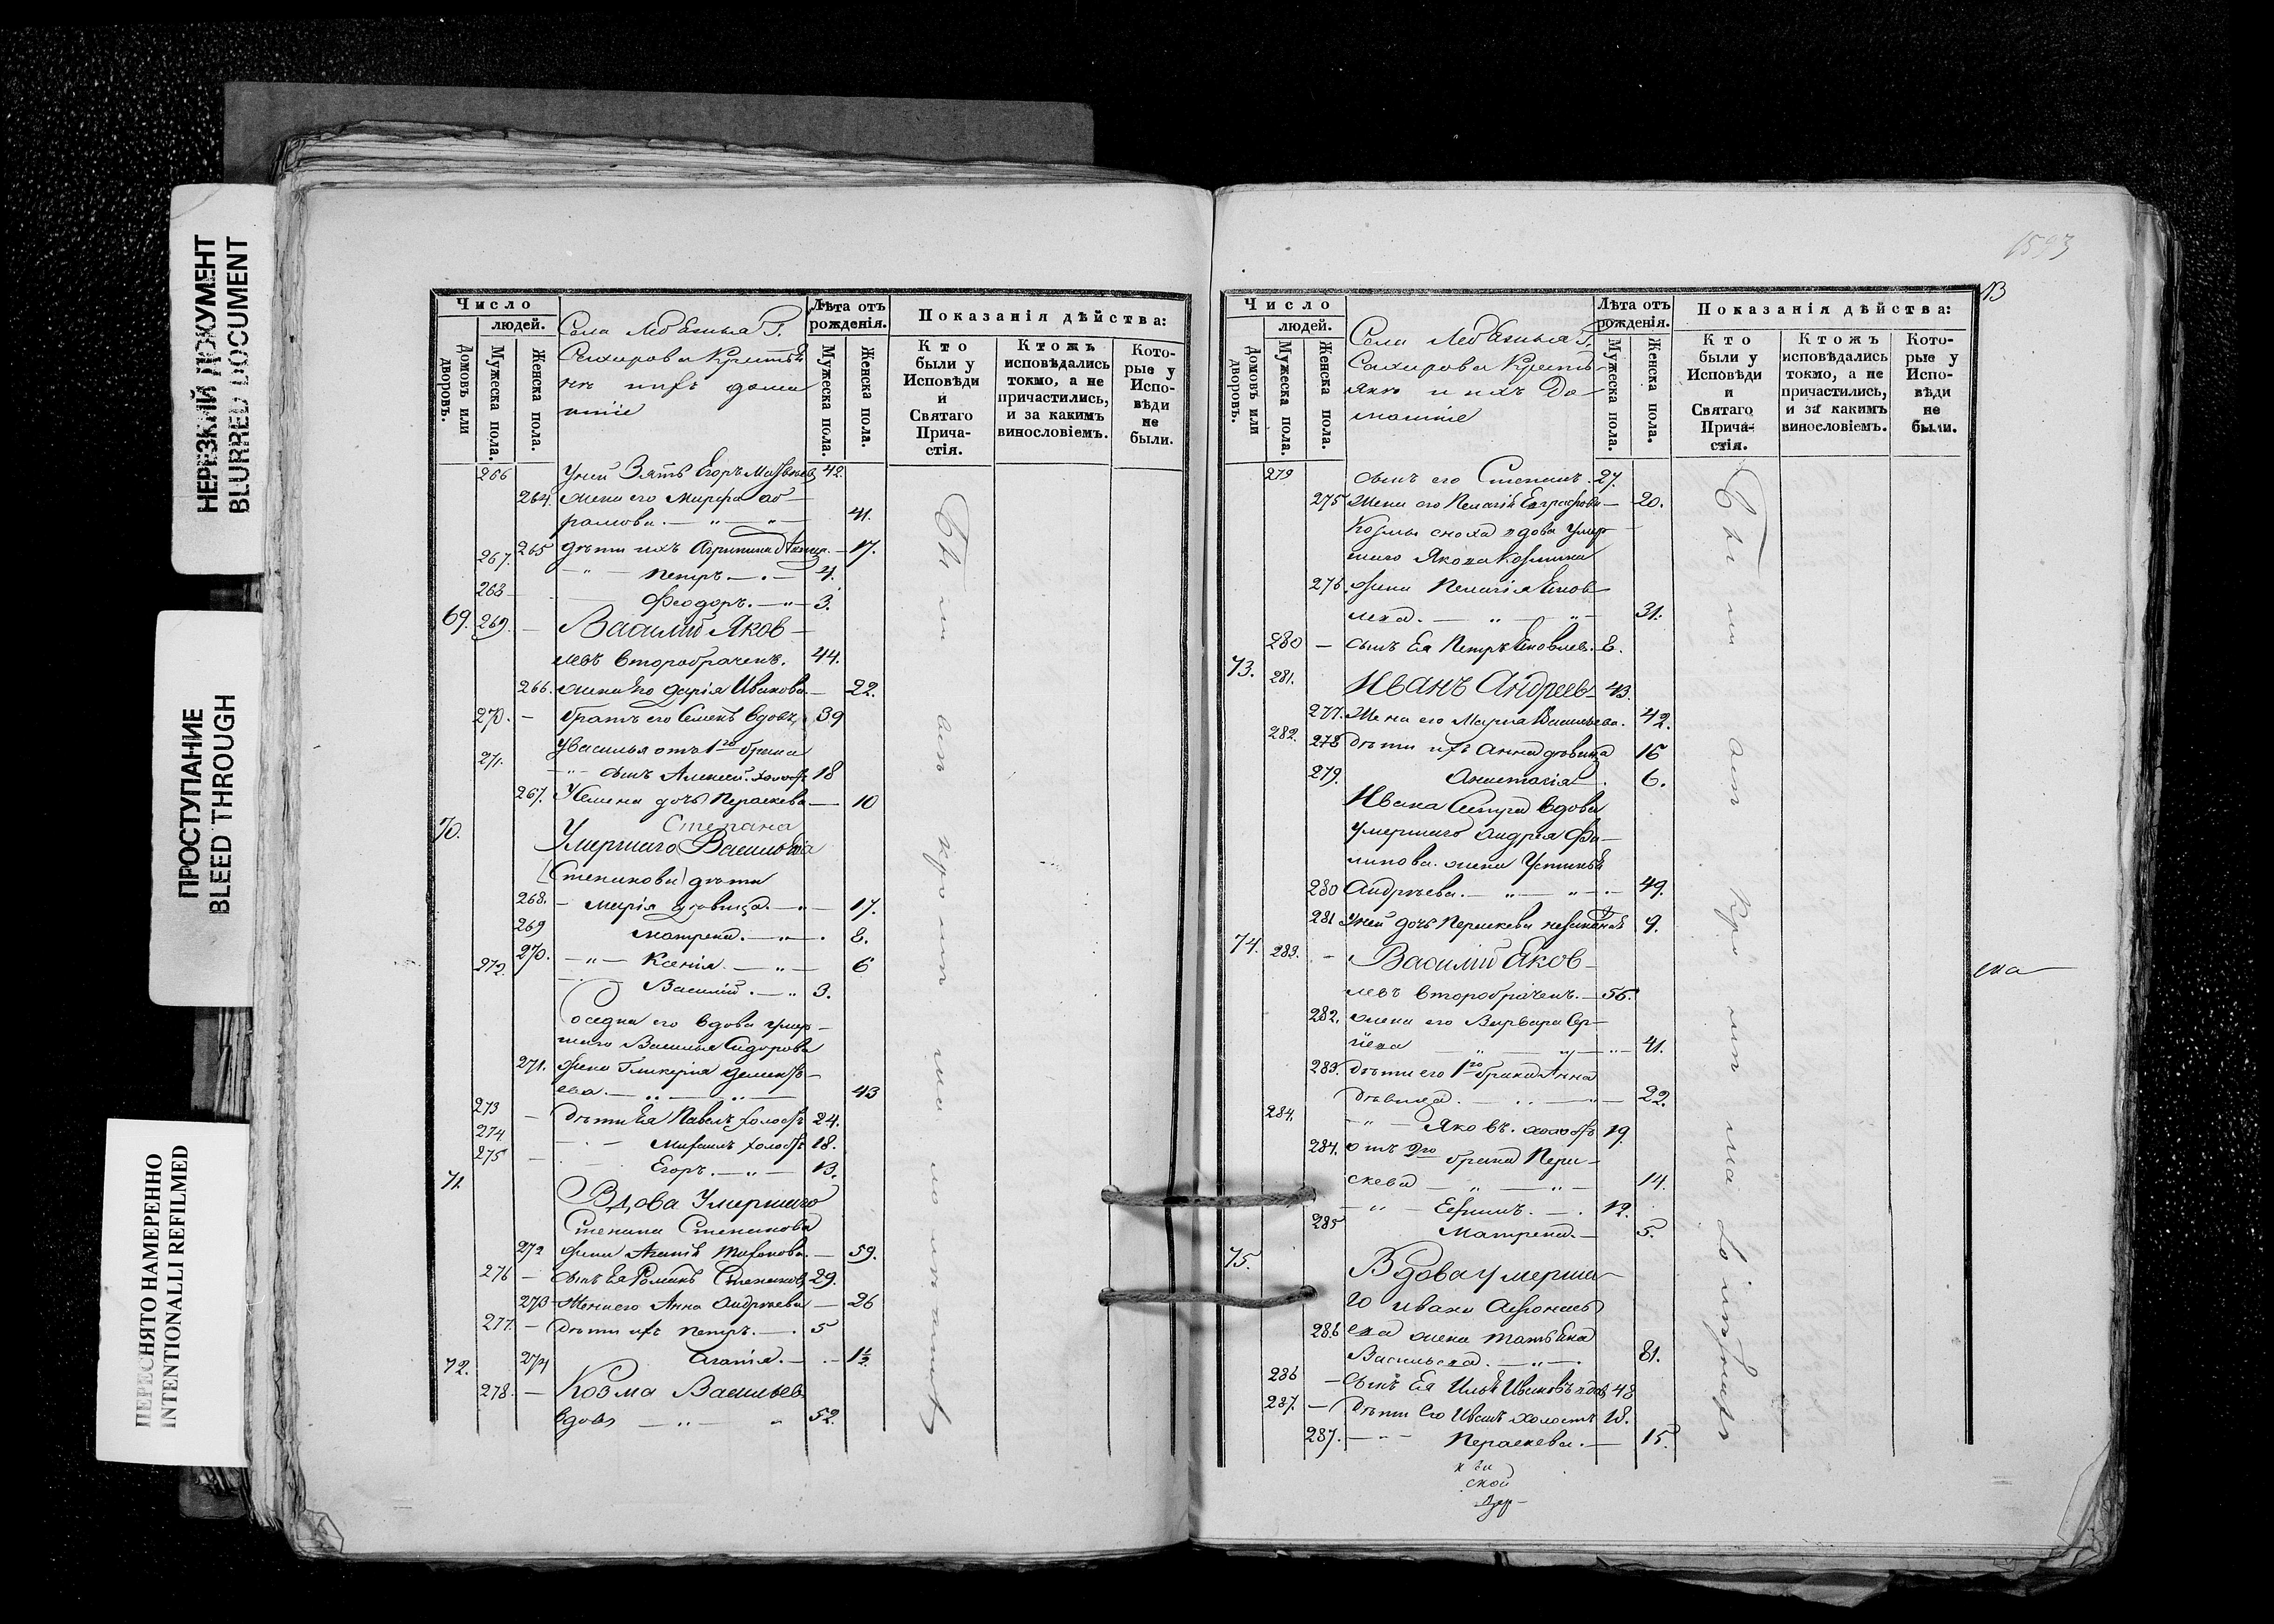 НЕРЕЗКИЙ ДОКУМЕНТ
BLURRED DOCUMENT
ПРОСТУПАНИЕ
BLEED THROUGH
ПЕРЕСНЯТО НАМЕРЕННО
INTENTIONALLI REFILMED
Число
людей.
Домовъ или дворовъ.
Мужеска пола.
Женска пола.
Села
Крестья
нъ ихъ дома
шніе
Лѣта отъ рожденія.
Мужеска пола.
Женска пола.
Показанія дѣйства:
Кто были у Исповѣди и Святаго Причастія.
Ктожъ исповѣдались токмо, а не причастились, и за какимъ винословіемъ.
Которые у Исповѣди не были.
266 Зять Егоръ 42.
264. жена его Марфа Аб-
рамова. — „ — „ — 41.
265 дѣти ихъ Агрипина — 17.
267. — „ — Петръ — . — 4.
268 Феодоръ. — „ — 3.
69. 269. — Василій Яков-
левъ второбраченъ. 44.
266. жена его Дарія Иванова — 22.
270. — братъ его Семенъ вдовъ 39
у Василья отъ 1го брака
271. — „ — сынъ Алексей. холостъ 18
267. У Семена дочь Параскева — 10
70. Степана
Умершаго Василья
(Степанова) дѣти
268. — Марія дѣвица. — „ — 17.
269 Матрена. — „ — . 8.
270. — „ — Ксенія. — „ — 6
272. Василій. — „ 3.
Соседка его вдова умер-
шаго Василья Сидорова
271. жена Гликерія Дементъ-
ева. — „ — „ — 43
273 — Дѣти Ея Павелъ холостъ 24.
274 — „ — Михаилъ холостъ 18.
275 — Егоръ. — „ — 13.
71. Вдова Умершаго
Степана Степанова
272 жена Агапія — 59.
276 — сынъ Ея Романъ Степановъ 29.
273 Жена его Анна Андреева — 26
277. — Дѣти ихъ Петръ. — . 5
274 Агапія. — . — 1½
72. 278. — Козма Васильев
вдовъ — „ — „ 52.
1593
13
Число
людей.
Домовъ или дворовъ.
Мужеска пола.
Женска пола.
Села
Кресть-
яне и ихъ До-
машніе
Лѣта отъ рожденія.
Мужеска пола.
Женска пола.
Показанія дѣйства:
Кто были у Исповѣди и Святаго Причастія.
Ктожъ исповѣдались токмо, а не причастились, и за какимъ винословіемъ.
Которые у Исповѣди не были.
279 сынъ его Степанъ. 27.
275 Жена его Пелагія Евграфова — 20.
Козмы сноха вдова умер-
шаго Якова Козмина
276. жена Пелагія Яков-
лева. — „ — „ — 31.
280 — сынъ Ея Петръ Яковлев. 8.
73. 281. Иванъ Андреев 43.
277. Жена его Марья Васильева. 42.
282. 278 Дѣти ихъ Анна дѣвица 16
279. Анастасія . 6.
Ивана вдова
умершаго Андрея Фи-
липова жена Устинья
280 Андреева. — „ — „ — 49.
281 У ней дочь Параскева 9.
74. 283. — Василій Яков-
левъ второбраченъ. — 56.
282. жена его Варвара Сер-
геева — „ — „ — 41.
283. Дѣти его 1го брака Анна
Дѣвица. — „ — „ — 22.
284. — „ — Яковъ. холостъ 19.
284. отъ 2го брака Пара-
скева — „ — „ — 14.
— „ — Ефимъ. — . 12.
285 Матрена. — 5.
75. Вдова умерша-
го Ивана Афонась-
286 ева жена Татьяна
Васильева. — „ — . 81.
286 — сынъ Ея Илья Ивановъ вдов 48
287. — Дѣти Его Иванъ холостъ 18.
287. — „ — Параскева. — 15.
ской